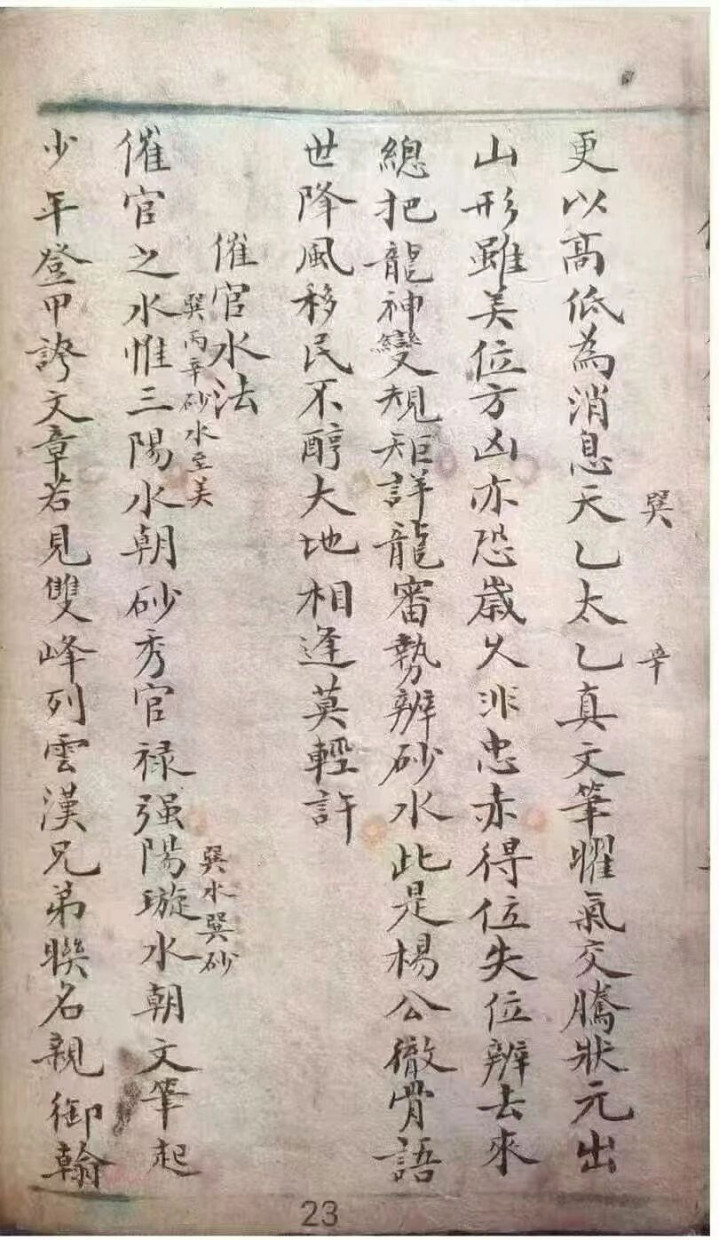 巽 辛
更以高低為消息天乙太乙真文筆曜氣交騰狀元出
山形雖美位方凶亦恐歲久非忠赤得位失位辨去來
總把龍神變規矩詳龍審勢辨砂水此是楊公徹骨語
世降風移民不醇大地相逢莫輕許
催官水法
巽丙辛砂水至美
巽水巽砂
催官之水惟三陽水朝砂秀官禄强陽璇水朝文筆起
少年登甲誇文章若見雙峰列雲漢兄弟聨名親御翰
23